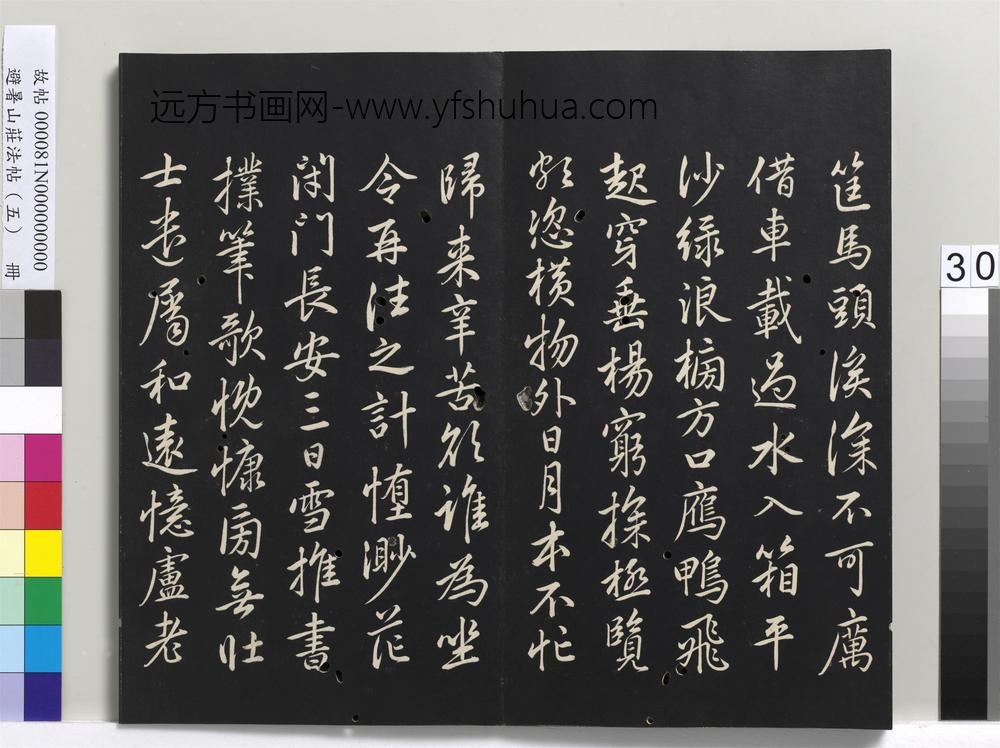 远方书画网-www.yfshuhua.com
筐馬頭溪深不可厲
借車載過水入箱平
沙綠浪榜方口鴈鴨飛
起穿垂楊窮探極覽
頗恣橫物外日月本不忙
歸来辛苦欲誰為坐
令再往之計墮渺茫
閉門長安三日雪推書
撲筆歌慨慷旁無壯
士遣屬和遠憶盧老
故帖 000081N000000000
避暑山莊法帖（五） 冊
30